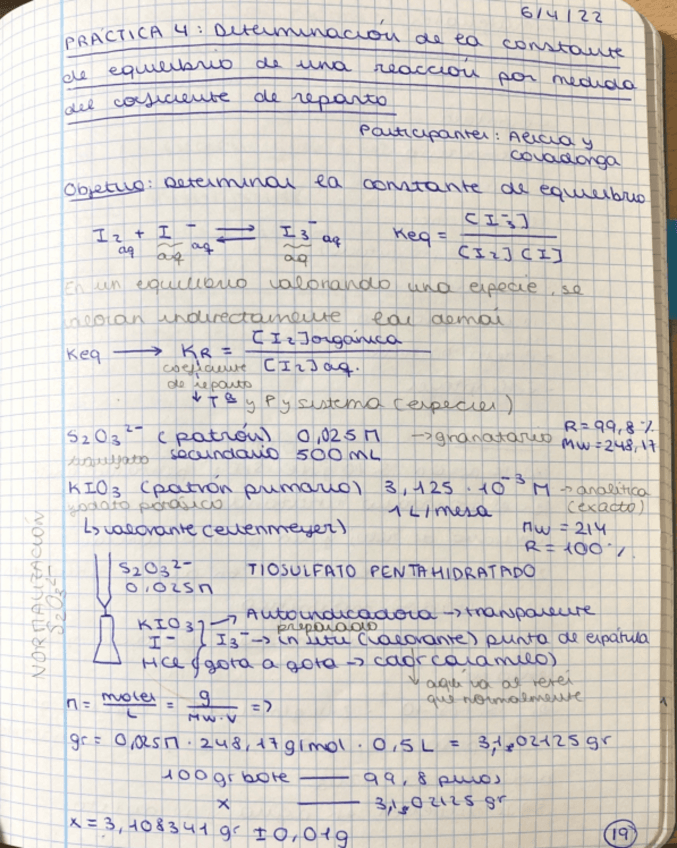 6/4/22
PRÁCTICA 4: Determinación de la constante
de equilibrio de una reacción por medida
del coeficiente de reparto
Participantes: Alicia y
Covadonga
Objetivo: Determinar la constante de equilibrio
I2 aq + I⁻ aq ⇌ I3⁻ aq Keq = [I3⁻] / [I2][I]
aq aq
En un equilibrio valorando una especie, se
valoran indirectamente las demás
Keq → KR = [I2]orgánica / [I2]aq.
coeficiente
de reparto
↓ Tª y P y sistema (especies)
S2O3²⁻ (patrón) 0,025M → granatario R = 99,8 %
tiosulfato secundario 500 mL MW = 248,17
KIO3 (patrón primario) 3,125 · 10⁻³ M → analítica
yodato potásico 1L/mesa (exacto)
↳ valorante (erlenmeyer) MW = 214
R = 100 %
NORMALIZACIÓN
S2O3²⁻
S2O3²⁻ TIOSULFATO PENTAHIDRATADO
0,025M
KIO3 → Autoindicadora → transparente
preparado
I⁻ } I3⁻ → in situ (valorante) punta de espátula
HCl (gota a gota → color caramelo)
↓ aquí va al revés
que normalmente
M = moles / L = g / MW·V =>
gr = 0,025M · 248,17 g/mol · 0,5 L = 3,102125 gr
100 gr bote — 99,8 puros
x — 3,102125 gr
x = 3,108341 gr ± 0,01g
1
19